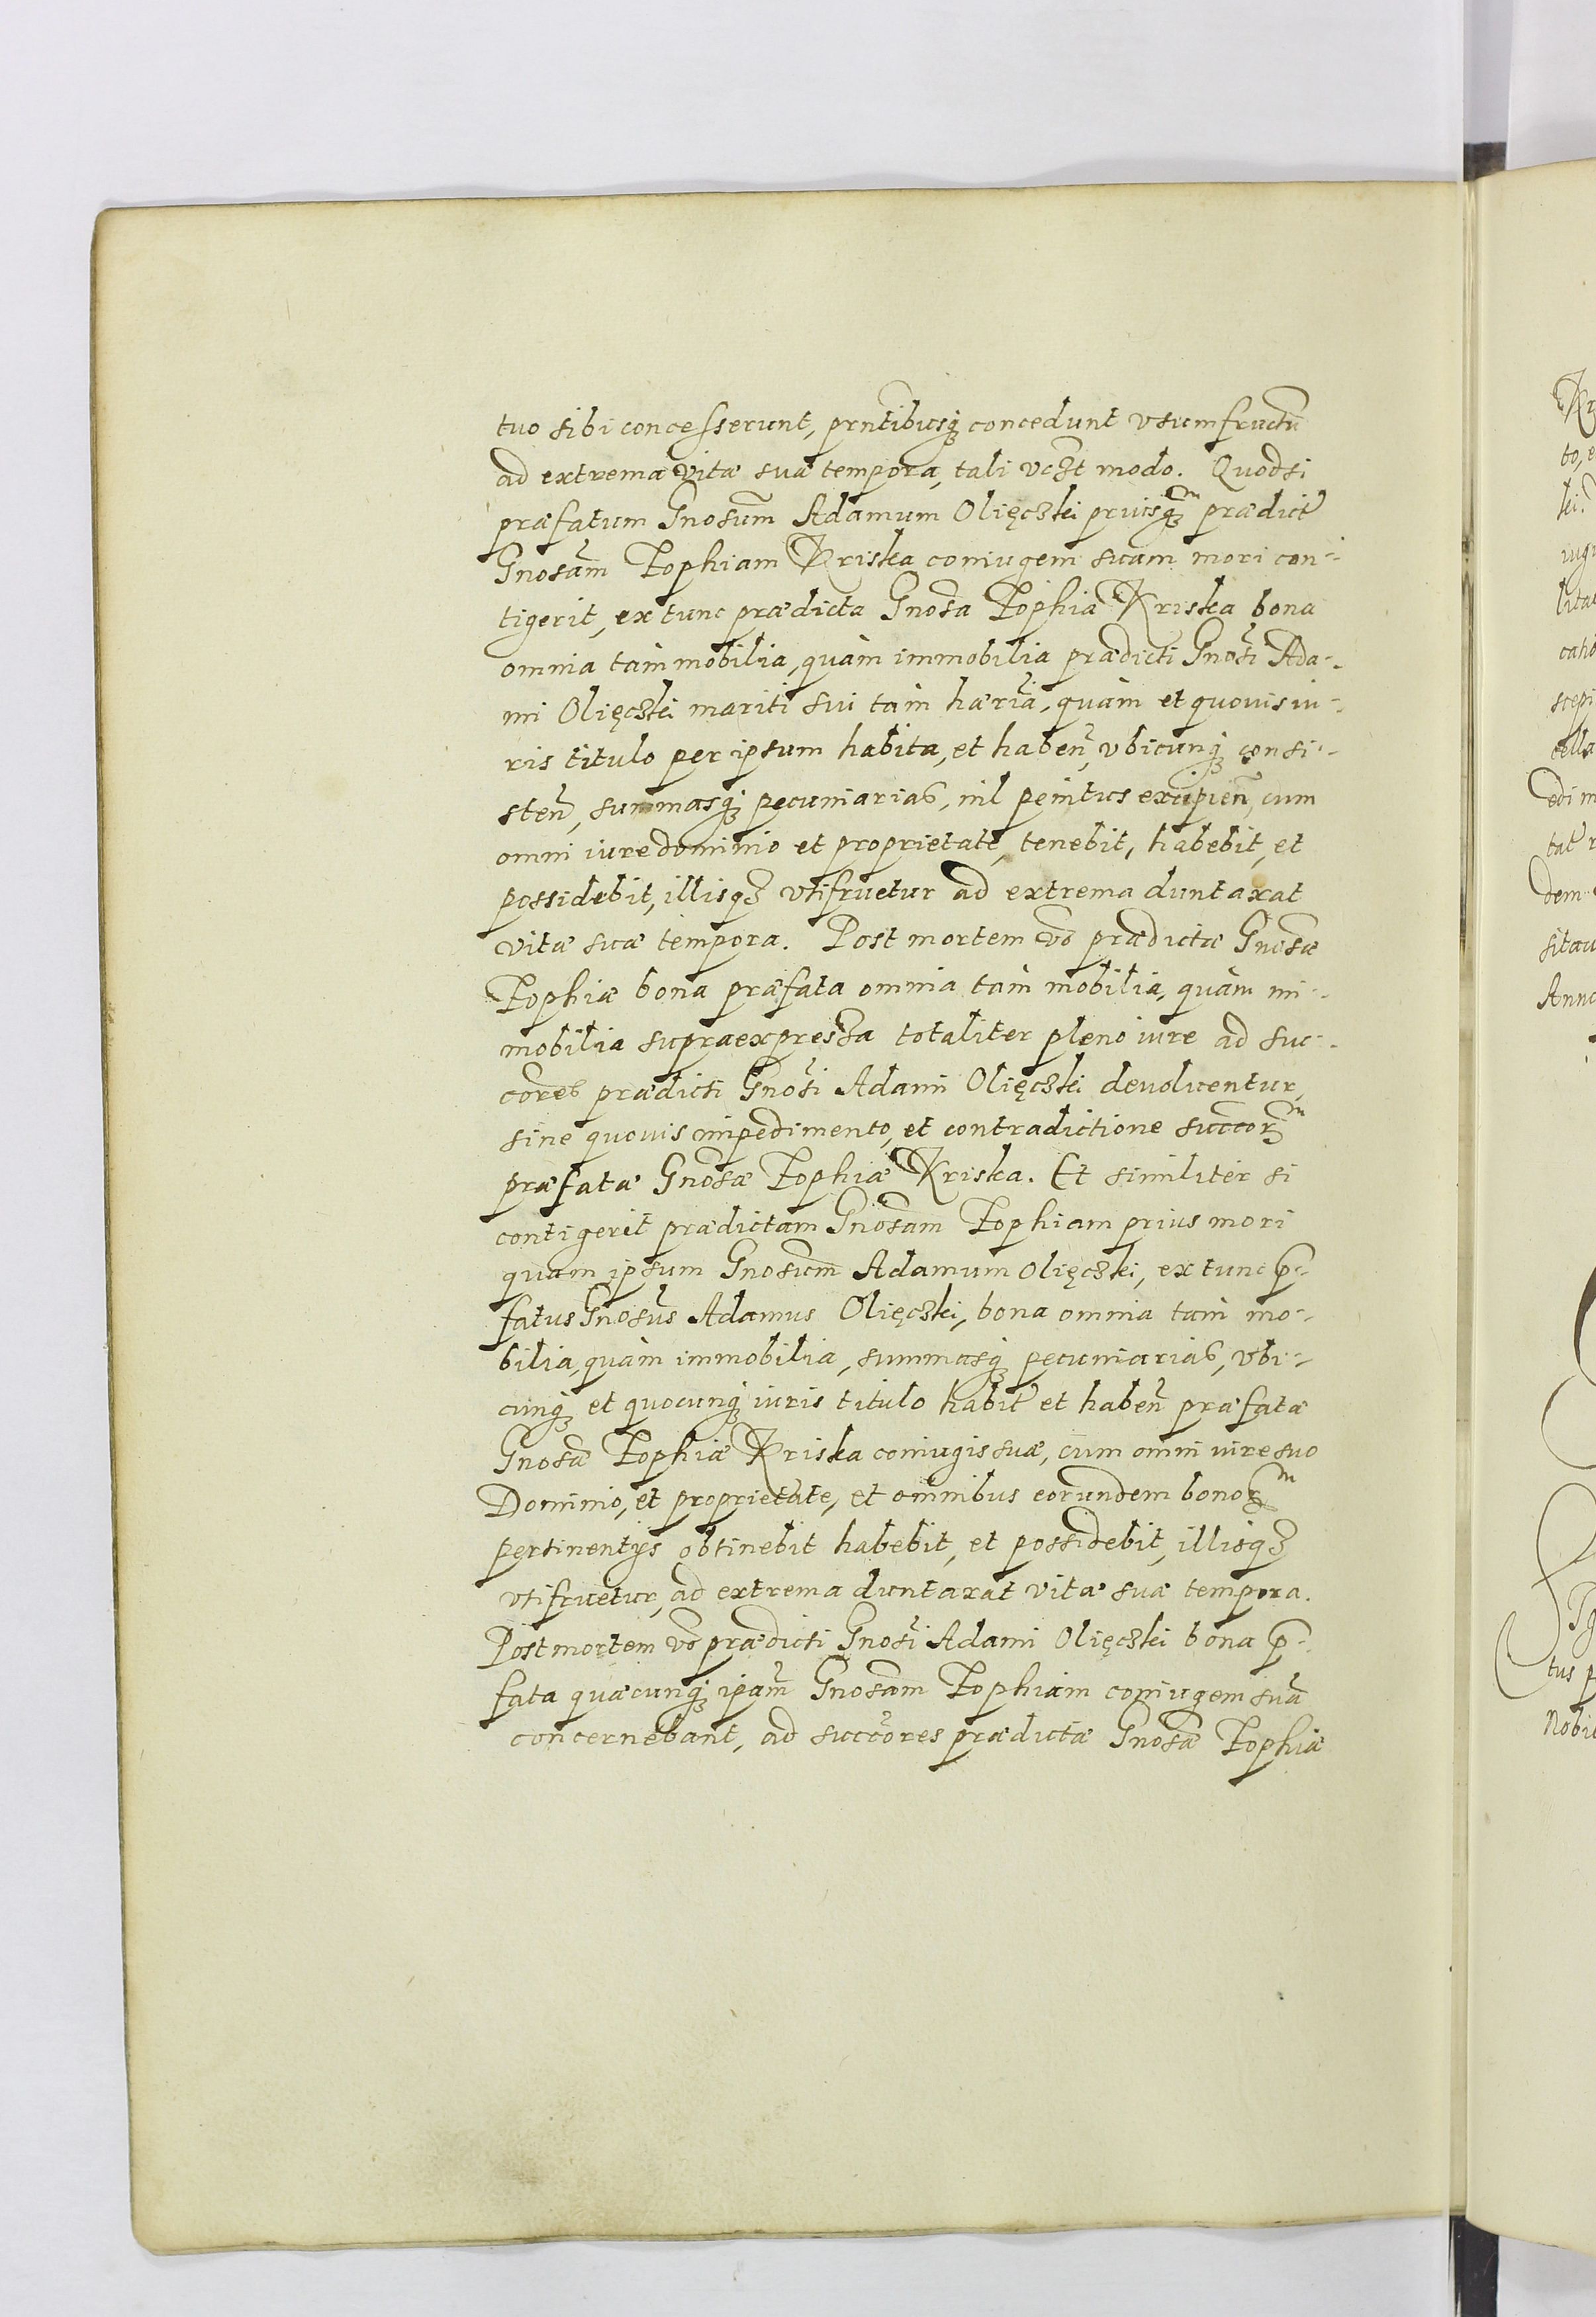 tuo sibi concesserunt, prntibusq; concedunt vsumfructũ
ad extrema vitæ suæ tempora, tali vczt modo. Quodsi
præfatum Gnosum Adamum Olięczki priusq;m prædict̃
Gnosam̃ Zophiam Kriska coniugem suam mori con-
tigerit, extunc prædicta Gnosa Zophia Kriska bona
omnia tam mobilia, quàm immobilia prædicti Gnosi Ada-
mi Olięczki mariti sui tàm hæria, quàm et quouis iu-
ris titulo per ipsum habita, et habeñ, vbicunq; consi-
steñ, summasq; pecuniarias, nil penitus excipieñ, cum
omni iure dominio et proprietate, tenebit, habebit, et
possidebit, illisq; vtifruetur ad extrema duntaxat
vitæ suæ tempora. Post mortem vo prædictæ Gnosæ
Zophiæ bona præfata omnia tam mobilia, quàm im-
mobilia supraexpressa totaliter pleno iure ad suc-
cores prædicti Gnosi Adami Olięczki deuoluentur,
sine quouis impedimento, et contradictione succorm
præfatæ Gnosæ Zophiæ Kriska. Et similiter si
contigerit prædictam Gnosam Zophiam prius mori
quam ipsum Gnosum Adamum Olięczki, extunc p̃-
fatus Gnosus Adamus Olięczki, bona omnia tam mo-
bilia, quàm immobilia, summasq; pecuniarias, vbi-
cunq; et quocunq; iuris titulo habit̃ et habeñ præfatæ
Gnosæ Zophiæ Kriska coniugis suæ, cum omni iure suo
Dominio, et proprietate, et omnibus eorundem bonorm
pertinentijs obtinebit habebit, et possidebit, illisq;
vtifruetur, ad extrema duntaxat vitæ suæ tempora.
Post mortem vo prædicti Gnosi Adami Olięczki bona p̃-
fata quæcunq; ipam̃ Gnosam Zophiam coniugem suã
concernebant, ad succores prædictæ Gnosæ Zophiæ